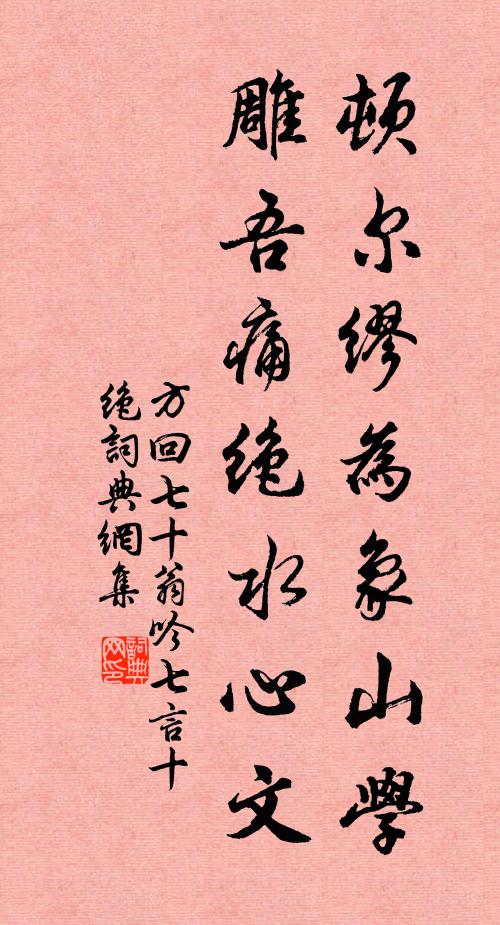 頓尔繆為象山學
雕吾痛絶水心文
方回七十翁吟七言十
絶詞典網集
詞典网印